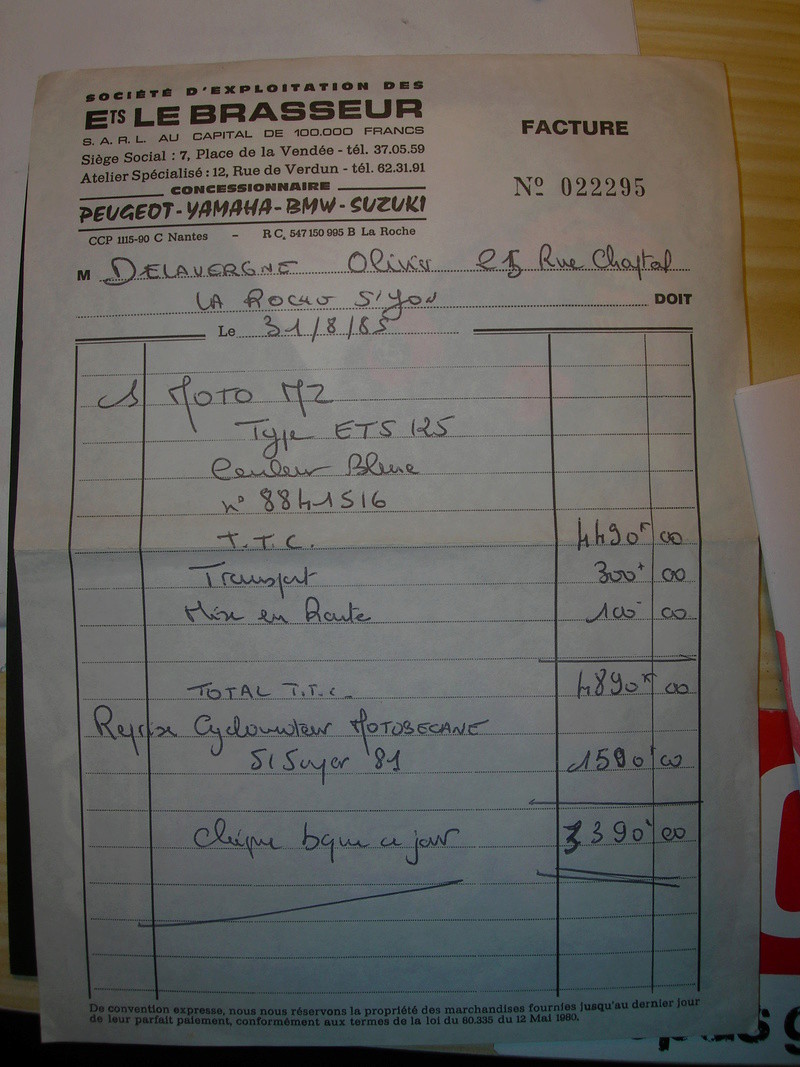 SOCIÉTÉ D'EXPLOITATION DES
ETS LE BRASSEUR
S. A. R. L. AU CAPITAL DE 100.000 FRANCS
Siège Social : 7, Place de la Vendée - tél. 37.05.59
Atelier Spécialisé : 12, Rue de Verdun - tél. 62.31.91
CONCESSIONNAIRE
PEUGEOT - YAMAHA - BMW - SUZUKI
CCP 1115-90 C Nantes - R C. 547 150 995 B La Roche
FACTURE
Nº 022295
M DELAVERGNE Olivier 25 Rue Chaptal
LA ROCHE S/Yon DOIT
Le 31/8/85
1 MOTO MZ
Type ETS 125
Couleur Bleue
n° 8841516
T.T.C. 4490F 00
Transport 300 00
Mise en Route 100 00
TOTAL T.T.C. 4890F 00
Reprise Cyclomoteur MOTOBECANE
81 1590 00
Chèque bque ce jour 3390 00
De convention expresse, nous nous réservons la propriété des marchandises fournies jusqu'au dernier jour
de leur parfait paiement, conformément aux termes de la loi du 80.335 du 12 Mai 1980.